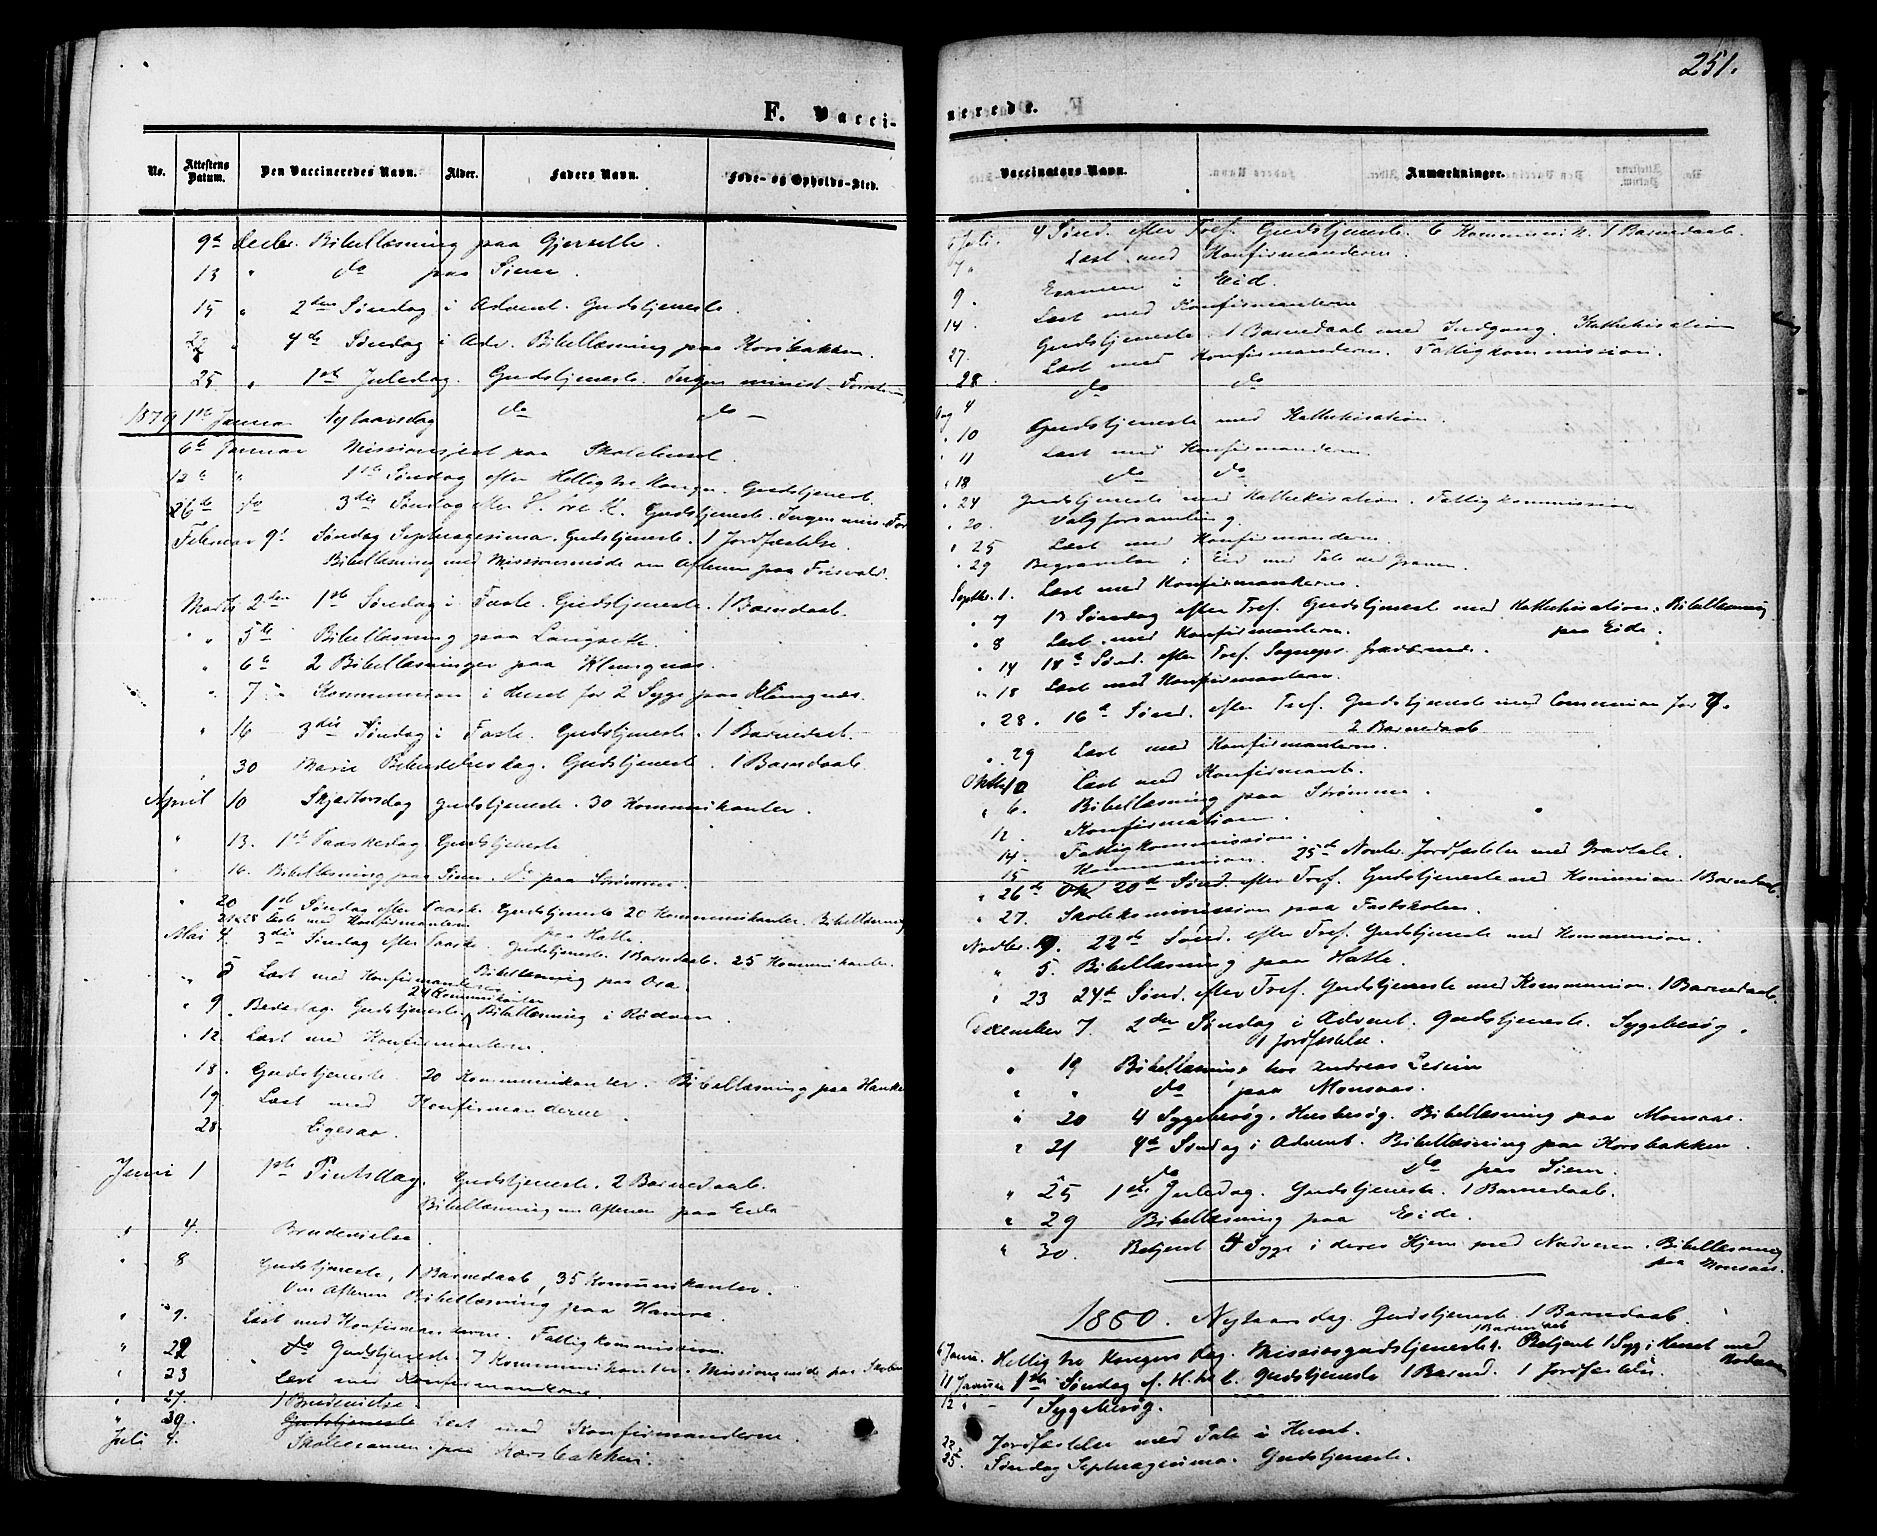 251.
F. Vacci-
nerede.
No.
Attestens Datum.
Den Vaccineredes Navn.
Alder.
Faders Navn.
Føde- og Opholds-Sted.
Vaccinatørs Navn.
Anmærkninger.
9de Decbr. Bibellæsning paa Gjersette.
13 " do paa Siem.
15 " 2den Søndag i Advent. Gudstjeneste.
22 " 4de Søndag i Adv. Bibellæsning paa Korsbakken.
25 " 1ste Juledag. Gudstjeneste. Ingen minist. Forretning
1879 1ste Januar Nytaarsdag do do
6te Januar Missionsfest paa Skolehuset.
12te " 1ste Søndag efter Hellig tre Konger. Gudstjeneste.
26de do 3die Søndag efter H. tre K. Gudstjeneste. Ingen min. For
Februar 9de Søndag Septuagesima. Gudstjeneste. 1 Jordfæstelse.
Bibellæsning med Missionsmøde om Aftenen paa Frisvold.
Marts 2den 1ste Søndag i Faste. Gudstjeneste. 1 Barnedaab.
" 5te Bibellæsning paa Langseth.
" 6te 2 Bibellæsninger paa Klungnæs.
" 7de Kommunion i Huset for 2 Syge paa Klungnæs.
" 16 3die Søndag i Faste. Gudstjeneste. 1 Barnedaab.
" 30 Mariæ Bebudelsesdag. Gudstjeneste. 1 Barnedaab.
April 10 Skjærtorsdag Gudstjeneste. 30 Kommunikanter.
" 13. 1ste Paaskedag Gudstjeneste
" 16. Bibellæsning paa Siem. do paa Strømme.
" 20 1ste Søndag efter Paaske. Gudstjeneste 20 Kommunikanter. Bibellæsning
paa Hatle.
21 & 28 Læst med Konfirmanterne
Mai 4. 3die Søndag efter Paaske. Gudstjeneste. 1 Barnedaab. 25 Kommunikanter.
" 5 Læst med Konfirmanterne Bibellæsning paa Ora.
" 9. Bededag. Gudstjeneste 24 Kommunikanter Bibellæsning i Rødven.
" 12. Læst med Konfirmanterne.
18. Gudstjeneste 20 Kommunikanter. Bibellæsning paa
19. Læst med Konfirmanderne.
28. Ligesaa.
Juni 1 1ste Pintsdag. Gudstjeneste. 2 Barnedaab.
Bibellæsning om Aftenen paa Eide
" 4. Brudevielse.
8 Gudstjeneste, 1 Barnedaab, 35 Kommunikanter.
Om Aftenen Bibellæsning paa Hamre.
" 9. Læst med Konfirmanderne. Fattigkommission.
" 22 do Gudstjeneste. 7 Kommunikanter. Missionsmøde paa
" 23 Læst med Konfirmanderne.
" 27. 1 Brudevielse
" 30. Gudstjeneste Læst med Konfirmanderne.
Juli 4. Skoleexamen paa Korsbakken.
Juli. 4 Sønd. efter Tref. Gudstjeneste. 6 Kommunik. 1 Barnedaab.
7 " Læst med Konfirmanderne.
9. Examen i Eid.
14. Læst med Konfirmanterne
27. Gudstjeneste. 1 Barnedaab med Indgang. Kathekisation
28. Læst med Konfirmanderne. Fattigkommission.
Aug 4 do do
" 10 Gudstjeneste med Kathekisation.
" 11 Læst med Konfirmanderne.
" 18 do do
" 24 Gudstjeneste med Kathekisation. Fattigkommission
" 20. Valgforsamling.
" 25 Læst med Konfirmanderne.
" 29 Begravelse i Eid med Tale ved Graven.
Septbr. 1. Læst med Konfirmanterne.
" 7 13 Søndag efter Tref. Gudstjeneste med Kathekisation. Bibellæsning
paa Eide.
" 8 Læst med Konfirmanterne.
" 14 18de Sønd. efter Tref. Sognepr. prædikede.
" 18 Læst med Konfirmanterne.
" 28. 16de Sønd. efter Tref. Gudstjeneste med Communion for 7.
2 Barnedaab
" 29 Læst med Konfirmanterne.
Oktbr. 2 Læst med Konfirmant.
" 6. Bibellæsning paa Strømme.
12. Konfirmation.
14. Fattigkommission.
15 Kommunion. 25de Novbr. Jordfæstelse med Gravtale.
" 26de Okt 20de Sønd. efter Tref. Gudstjeneste med Kommunion. 1 Barnedaab
" 27. Skolekommission paa Fastskolen.
Novbr. 9. 22de Sønd. efter Tref. Gudstjeneste med Kommunion.
" 5. Bibellæsning paa Hatle.
" 23 24de Sønd. efter Tref. Gudstjeneste med Kommunion. 1 Barnedaab.
December 7. 2den Søndag i Advent. Gudstjeneste. Sygebesøg.
1 Jordfæstelse.
" 19 Bibellæsning hos Andreas
" " do paa Monsaas.
" 20 4 Sygebesøg. Husbesøg. Bibellæsning paa Monsaas.
" 21 4de Søndag i Advent. Bibellæsning paa Korsbakken.
do do paa Siem.
" 25 1ste Juledag. Gudstjeneste. 1 Barnedaab.
" 29 Bibellæsning paa Eide.
" 30. Betjent 4 Syge i deres Hjem med Nadveren. Bibellæsning
paa Monsaas.
1880. Nytaarsdag Gudstjeneste 1 Barnedaab.
6 Janu. Hellig tre Kongers Dag. Missionsgudstjeneste. 1 Barnedaab Betjent 1 Syg i Huset med
Nadveren
11 Januar 1ste Søndag e. H. tre K. Gudstjeneste 1 Barned. 1 Jordfæstelse.
12 " - 1 Sygebesøg.
22. Jordfæstelse med Tale i Huset.
25. Søndag Septuagesima. Gudstjeneste.